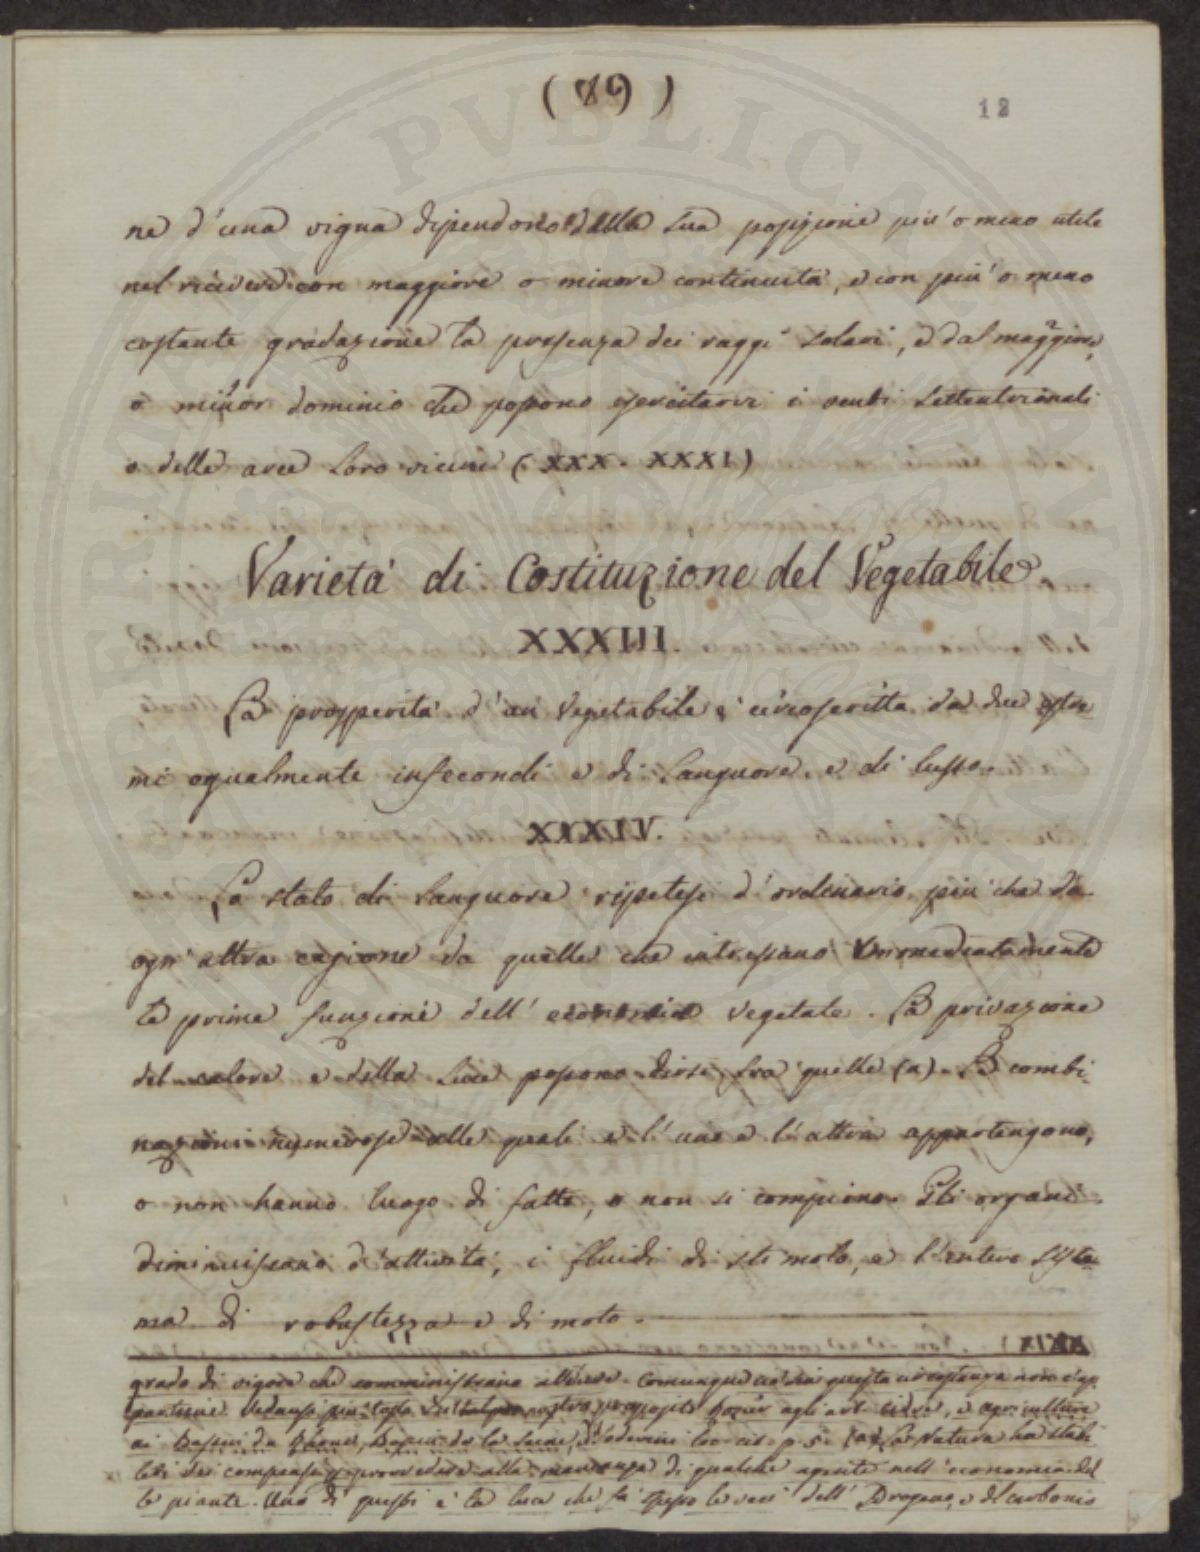 ( 79 )
12
ne d'una vigna dipendono dalla sua posizione più o meno utile
nel ricevere con maggiore o minore continuità, e con più o meno
costante gradazione la presenza dei raggi solari, e dal maggiore,
o minor dominio che possono esercitarvi i venti settentrionali
o delle aree loro vicine (XXX. XXXI)
Varietà di Costituzione del Vegetabile
XXXIII.
La prosperità d'un Vegetabile è circoscritta da due estre-
mi egualmente infecondi e di Languore, e di lusso.
XXXIV.
Lo stato di Languore ripetesi d'ordinario più che da
ogn'altra cagione da quelle che interessano immediatamente
le prime funzioni dell'economia vegetale. La privazione
del calore e della Luce possono dirsi fra quelle (a). Le combi-
nazioni numerose alle quali e l'una e l'altra appartengono,
o non hanno luogo di fatto, o non si compiono. Gli organi
diminuiscono d'attività, i fluidi di stimolo, e l'intero siste-
ma di robustezza e di moto.
grado di vigore che somministrano Comunque sia questa circostanza non è ap
partiene. Vedansi piu tosto proposito Rozier agli art. e agriculture
ai Bassin du Rhone, Bassin de la Seine, loc. cit. p. 5. (a) La Natura ha stabi
liti dei compensi provvedere alla mancanza di qualche agente nell'economia del
le piante. Uno di questi è la luce che fa spesso le veci dell' e del carbonio